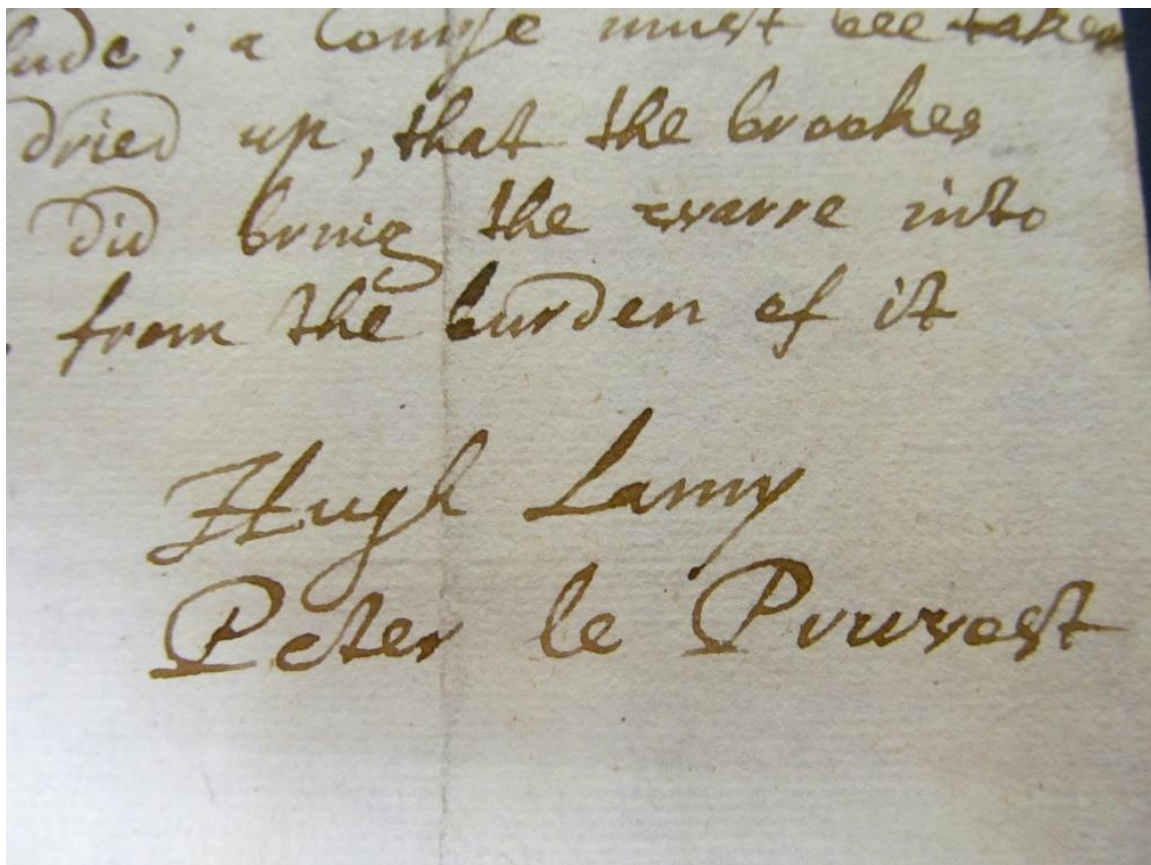 lude; a Course must bee taken
dried up, that the brookes
did bring the warre into
from the burden of it
Hugh Lamy
Peter le Pruvost